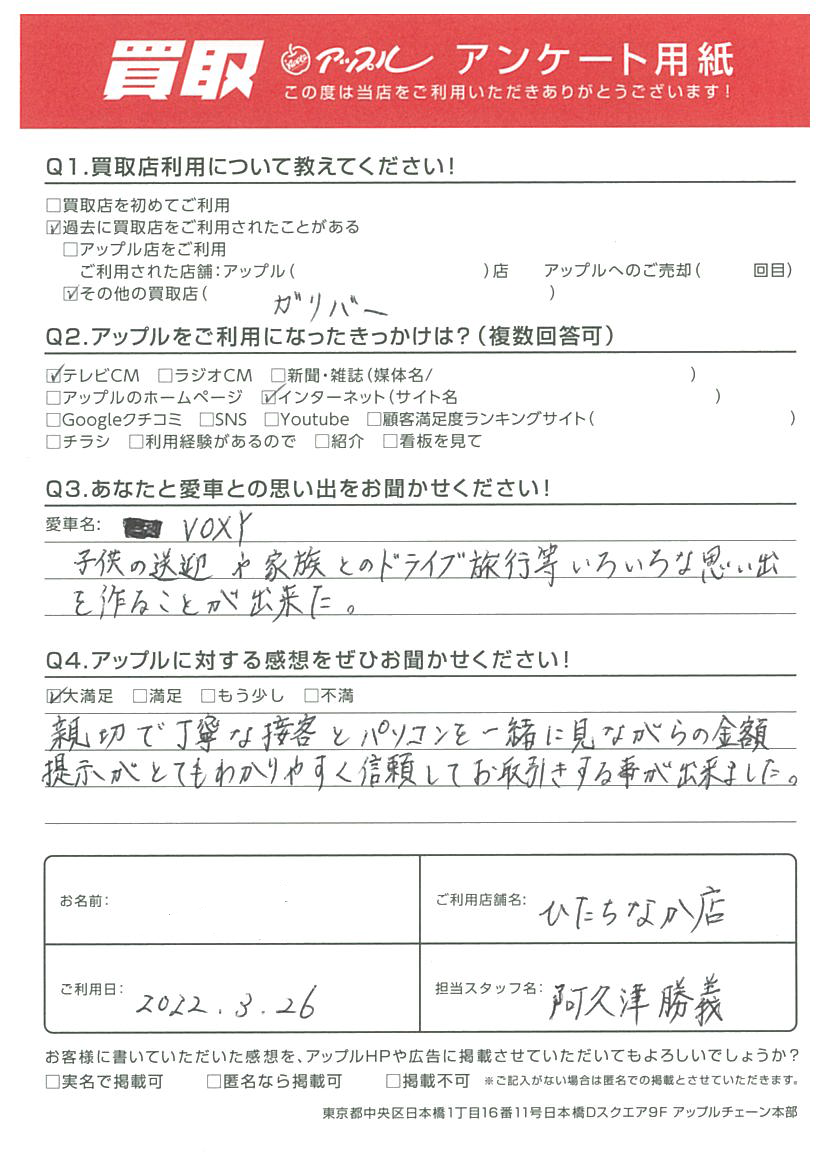 買取 アップル アンケート用紙
この度は当店をご利用いただきありがとうございます!
Q1.買取店利用について教えてください!
□買取店を初めてご利用
☑過去に買取店をご利用されたことがある
□アップル店をご利用
ご利用された店舗:アップル( )店 アップルへのご売却( 回目)
☑その他の買取店( ガリバー )
Q2.アップルをご利用になったきっかけは?(複数回答可)
☑テレビCM □ラジオCM □新聞・雑誌(媒体名/ )
□アップルのホームページ ☑インターネット(サイト名 )
□Googleクチコミ □SNS □Youtube □顧客満足度ランキングサイト( )
□チラシ □利用経験があるので □紹介 □看板を見て
Q3.あなたと愛車との思い出をお聞かせください!
愛車名: VOXY
子供の送迎や家族とのドライブ旅行等いろいろな思い出
を作ることが出来た。
Q4.アップルに対する感想をぜひお聞かせください!
☑大満足 □満足 □もう少し □不満
親切で丁寧な接客とパソコンを一緒に見ながらの金額
提示がとてもわかりやすく信頼してお取引きする事が出来ました。
お名前:
ご利用店舗名: ひたちなか店
ご利用日: 2022.3.26
担当スタッフ名: 阿久津勝義
お客様に書いていただいた感想を、アップルHPや広告に掲載させていただいてもよろしいでしょうか?
□実名で掲載可 □匿名なら掲載可 □掲載不可 ※ご記入がない場合は匿名での掲載とさせていただきます。
東京都中央区日本橋1丁目16番11号日本橋Dスクエア9F アップルチェーン本部